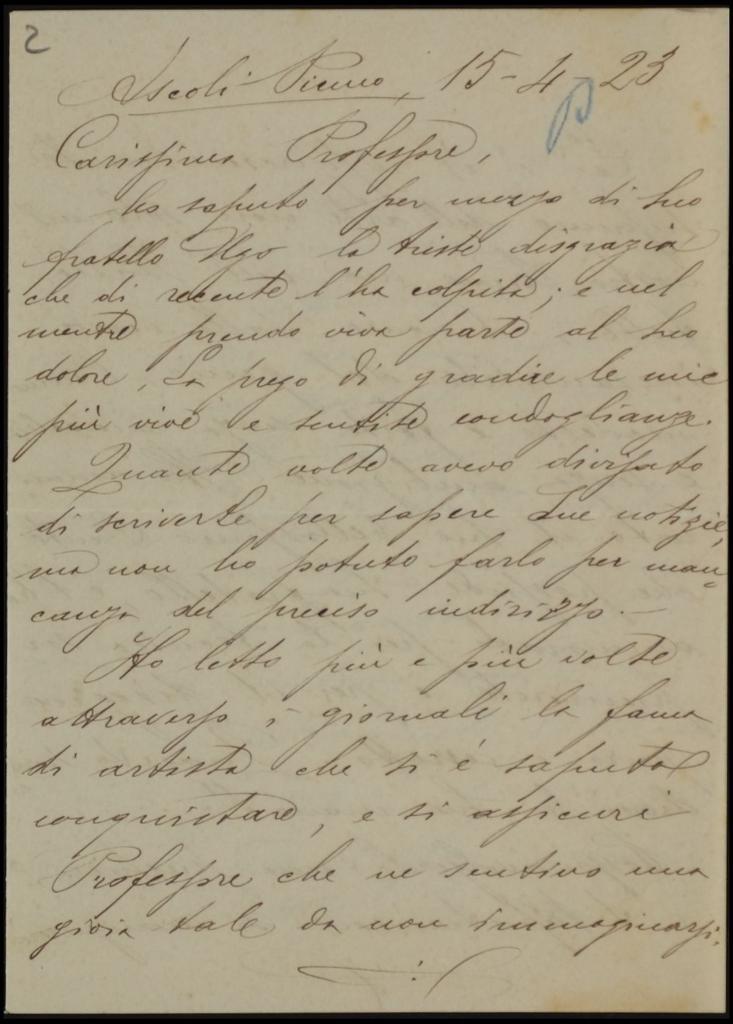 2
Ascoli Piceno, 15-4-23
Carissimo Professore,
ho saputo per mezzo di suo
fratello Ugo la triste disgrazia
che di recente l'ha colpita; e nel
mentre prendo viva parte al suo
dolore, La prego di gradire le mie
più vive e sentite condoglianze.
Quante volte avevo divisato
di scriverle per sapere Sue notizie,
ma non ho potuto farlo per man-
canza del preciso indirizzo. -
Ho letto più e più volte
attraverso i giornali la fama
di artista che si è saputa
conquistare, e si assicuri
Professore che ne sentivo una
gioia tale da non immaginarsi.